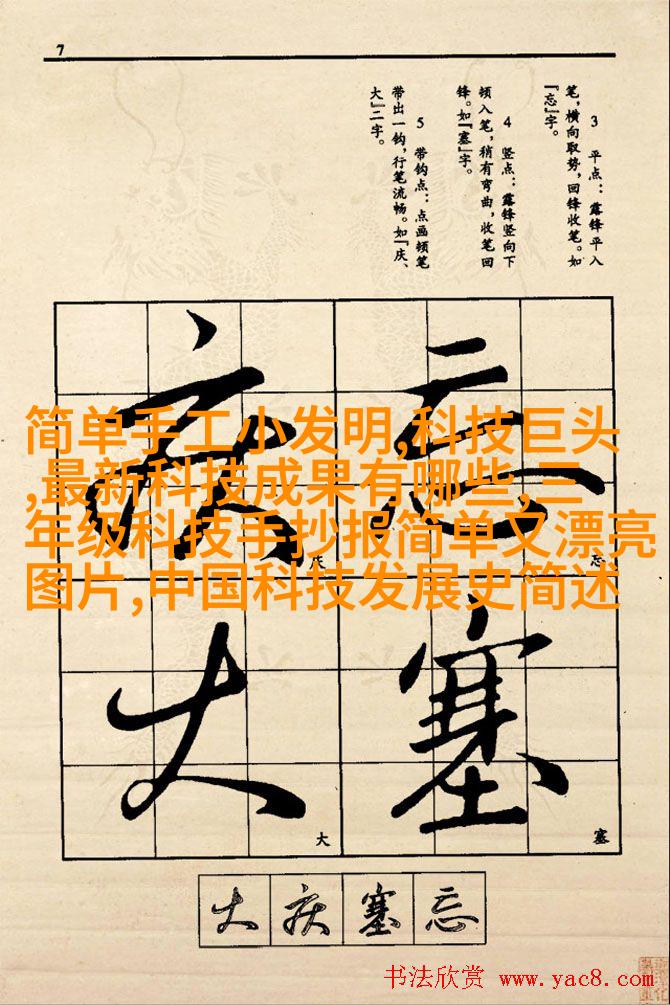 7
3 平点：露锋平入
笔，横向取势，回锋收笔。如
『忘』字。
4 竖点：露锋竖向下
顿入笔，稍有弯曲，收笔回
锋。如『塞』字。
5 带钩点：点画顿笔
带出一钩，行笔流畅。如『庆、
大』二字。
庆 忘
简单手工小发明,科技巨头
,最新科技成果有哪些,三
年级科技手抄报简单又漂亮
图片,中国科技发展史简述
庆 忘
大 塞
大 塞
大 庆 塞 忘
书法欣赏 www.yac8.com